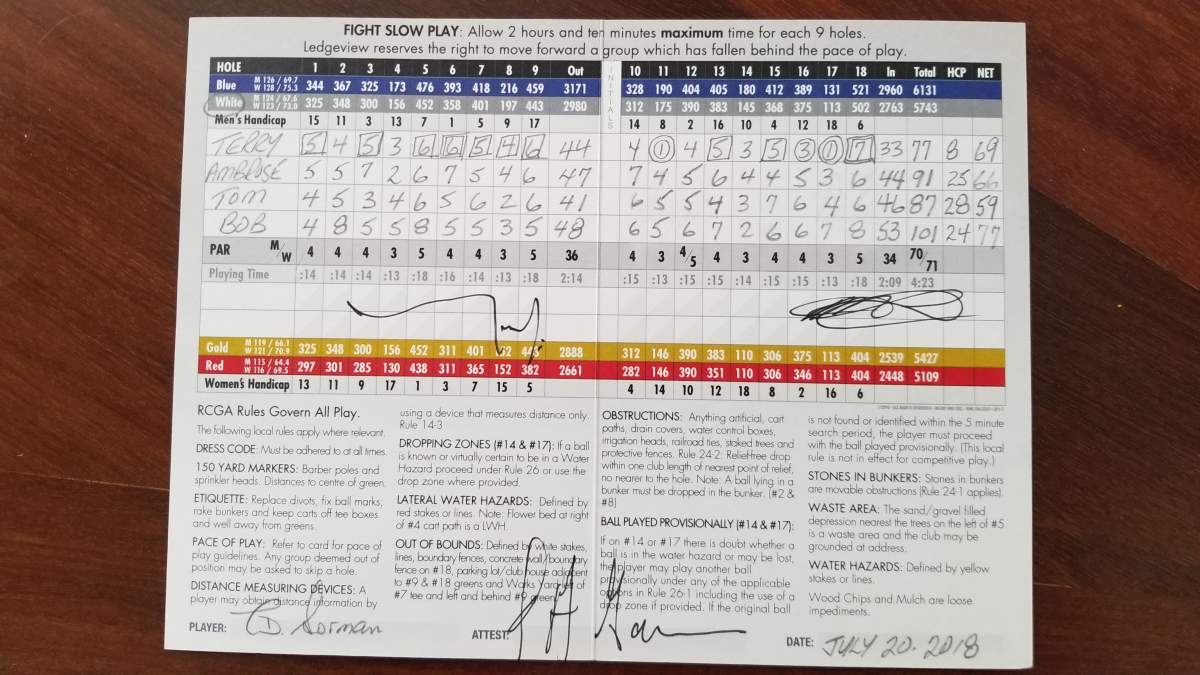 FIGHT SLOW PLAY: Allow 2 hours and ten minutes maximum time for each 9 holes.
Ledgeview reserves the right to move forward a group which has fallen behind the pace of play.
HOLE 1 2 3 4 5 6 7 8 9 Out INITIALS 10 11 12 13 14 15 16 17 18 In Total HCP NET
Blue M 126 / 69.7 W 128 / 75.3 344 367 325 173 476 393 418 216 459 3171 328 190 404 405 180 412 389 131 521 2960 6131
White M 124 / 67.6 W 123 / 73.0 325 348 300 156 452 358 401 197 443 2980 312 175 390 383 145 368 375 113 502 2763 5743
Men's Handicap 15 11 3 13 7 1 5 9 17 14 8 2 16 10 4 12 18 6
TERRY 5 4 5 3 6 6 5 4 6 44 4 1 4 5 3 5 3 1 7 33 77 8 69
AMBROSE 5 5 7 2 6 7 5 4 6 47 7 4 5 6 4 4 5 3 6 44 91 25 66
TOM 4 5 3 4 6 5 6 2 6 41 6 5 5 4 3 7 6 4 6 46 87 28 59
BOB 4 8 5 5 8 5 5 3 5 48 6 5 6 7 2 6 6 7 8 53 101 24 77
PAR M/W 4 4 4 3 5 4 4 3 5 36 4 3 4/5 4 3 4 4 3 5 34 70/71
Playing Time :14 :14 :14 :13 :18 :16 :14 :13 :18 2:14 :15 :13 :15 :15 :14 :15 :15 :13 :18 2:09 4:23
Gold M 119 / 66.1 W 121 / 70.9 325 348 300 156 452 311 401 443 2888 312 146 390 383 110 306 375 113 404 2539 5427
Red M 115 / 64.4 W 116 / 69.5 297 301 285 130 438 311 365 152 382 2661 282 146 390 351 110 306 346 113 404 2448 5109
Women's Handicap 13 11 9 17 1 3 7 15 5 4 14 10 12 18 8 2 16 6
RCGA Rules Govern All Play.
The following local rules apply where relevant.
DRESS CODE: Must be adhered to at all times.
150 YARD MARKERS: Barber poles and
sprinkler heads. Distances to centre of green.
ETIQUETTE: Replace divots, fix ball marks,
rake bunkers and keep carts off tee boxes
and well away from greens.
PACE OF PLAY: Refer to card for pace of
play guidelines. Any group deemed out of
position may be asked to skip a hole.
DISTANCE MEASURING DEVICES: A
player may obtain distance information by
using a device that measures distance only.
Rule 14-3
DROPPING ZONES (#14 & #17): If a ball
is known or virtually certain to be in a Water
Hazard proceed under Rule 26 or use the
drop zone where provided.
LATERAL WATER HAZARDS: Defined by
red stakes or lines. Note: Flower bed at right
of #4 cart path is a LWH.
OUT OF BOUNDS: Defined by white stakes,
lines, boundary fences, concrete wall/boundary
fence on #18, parking lot/club house adjacent
to #9 & #18 greens and Works Yard left of
#7 tee and left and behind #9 green.
OBSTRUCTIONS: Anything artificial, cart
paths, drain covers, water control boxes,
irrigation heads, railroad ties, staked trees and
protective fences. Rule 24-2: Relief-free drop
within one club length of nearest point of relief,
no nearer to the hole. Note: A ball lying in a
bunker must be dropped in the bunker. (#2 &
#8)
BALL PLAYED PROVISIONALLY (#14 & #17):
If on #14 or #17 there is doubt whether a
ball is in the water hazard or may be lost,
the player may play another ball
provisionally under any of the applicable
options in Rule 26-1 including the use of a
drop zone if provided. If the original ball
is not found or identified within the 5 minute
search period, the player must proceed
with the ball played provisionally. (This local
rule is not in effect for competitive play.)
STONES IN BUNKERS: Stones in bunkers
are movable obstructions (Rule 24-1 applies).
WASTE AREA: The sand/gravel filled
depression nearest the trees on the left of #5
is a waste area and the club may be
grounded at address.
WATER HAZARDS: Defined by yellow
stakes or lines.
Wood Chips and Mulch are loose
impediments.
PLAYER: D. Sorman ATTEST: DATE: JULY 20. 2018